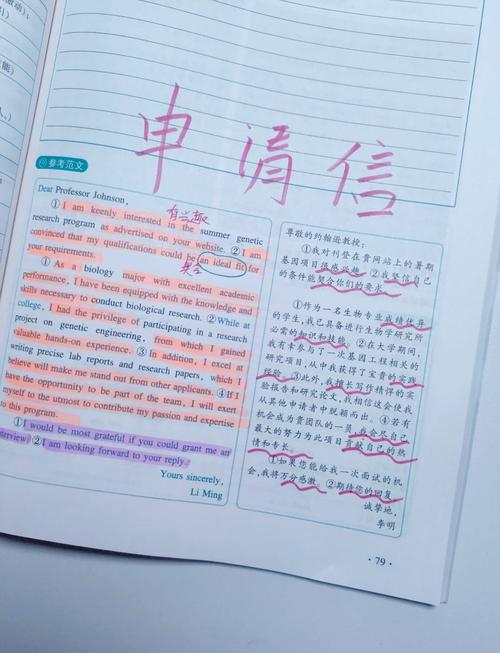 能）
申请信
参考范文
Dear Professor Johnson,
有兴趣
① I am keenly interested in the summer genetic
research program as advertised on your website. ② I am
convinced that my qualifications could be an ideal fit for
your requirements.
契合
① As a biology major with excellent academic
performance, I have been equipped with the knowledge and
skills necessary to conduct biological research. ② While at
college, I had the privilege of participating in a research
project on genetic engineering, from which I gained
valuable hands-on experience. ③ In addition, I excel at
writing precise lab reports and research papers, which I
believe will make me stand out from other applicants. ④ If I
have the opportunity to be part of the team, I will exert
myself to the utmost to contribute my passion and expertise
to this program.
① I would be most grateful if you could grant me an
interview. ② I am looking forward to your reply.
Yours sincerely,
Li Ming
尊敬的约翰逊教授：
①我对刊登在贵网站上的暑期
基因项目很感兴趣。②我坚信自己
的条件能契合你们的要求。
①作为一名生物专业成绩优异
的学生，我已具备进行生物学研究所
必需的知识和技能。②在大学期间，
我有幸参与了一次基因工程相关的
研究项目，从中我获得了宝贵的实践
经验。③此外，我擅长写作精确的实
验报告和研究论文，我相信这会使我
从其他申请者中脱颖而出。④若有
机会成为贵团队的一员，我会尽自己
最大的努力为此项目贡献自己的热
情和专长。
①如果您能给我一次面试的机
会，我将万分感激。②期待您的回复。
诚挚地，
李明
·79·